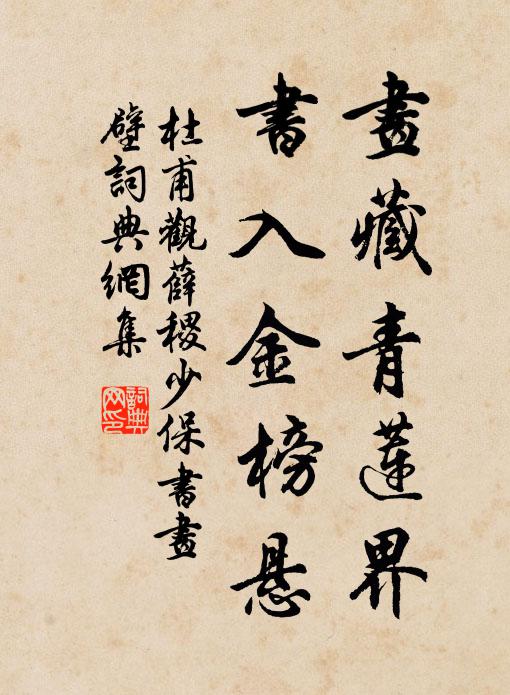 畫藏青蓮界
書入金榜悬
杜甫觀薛稷少保書畫
壁詞典網集
詞典
网印